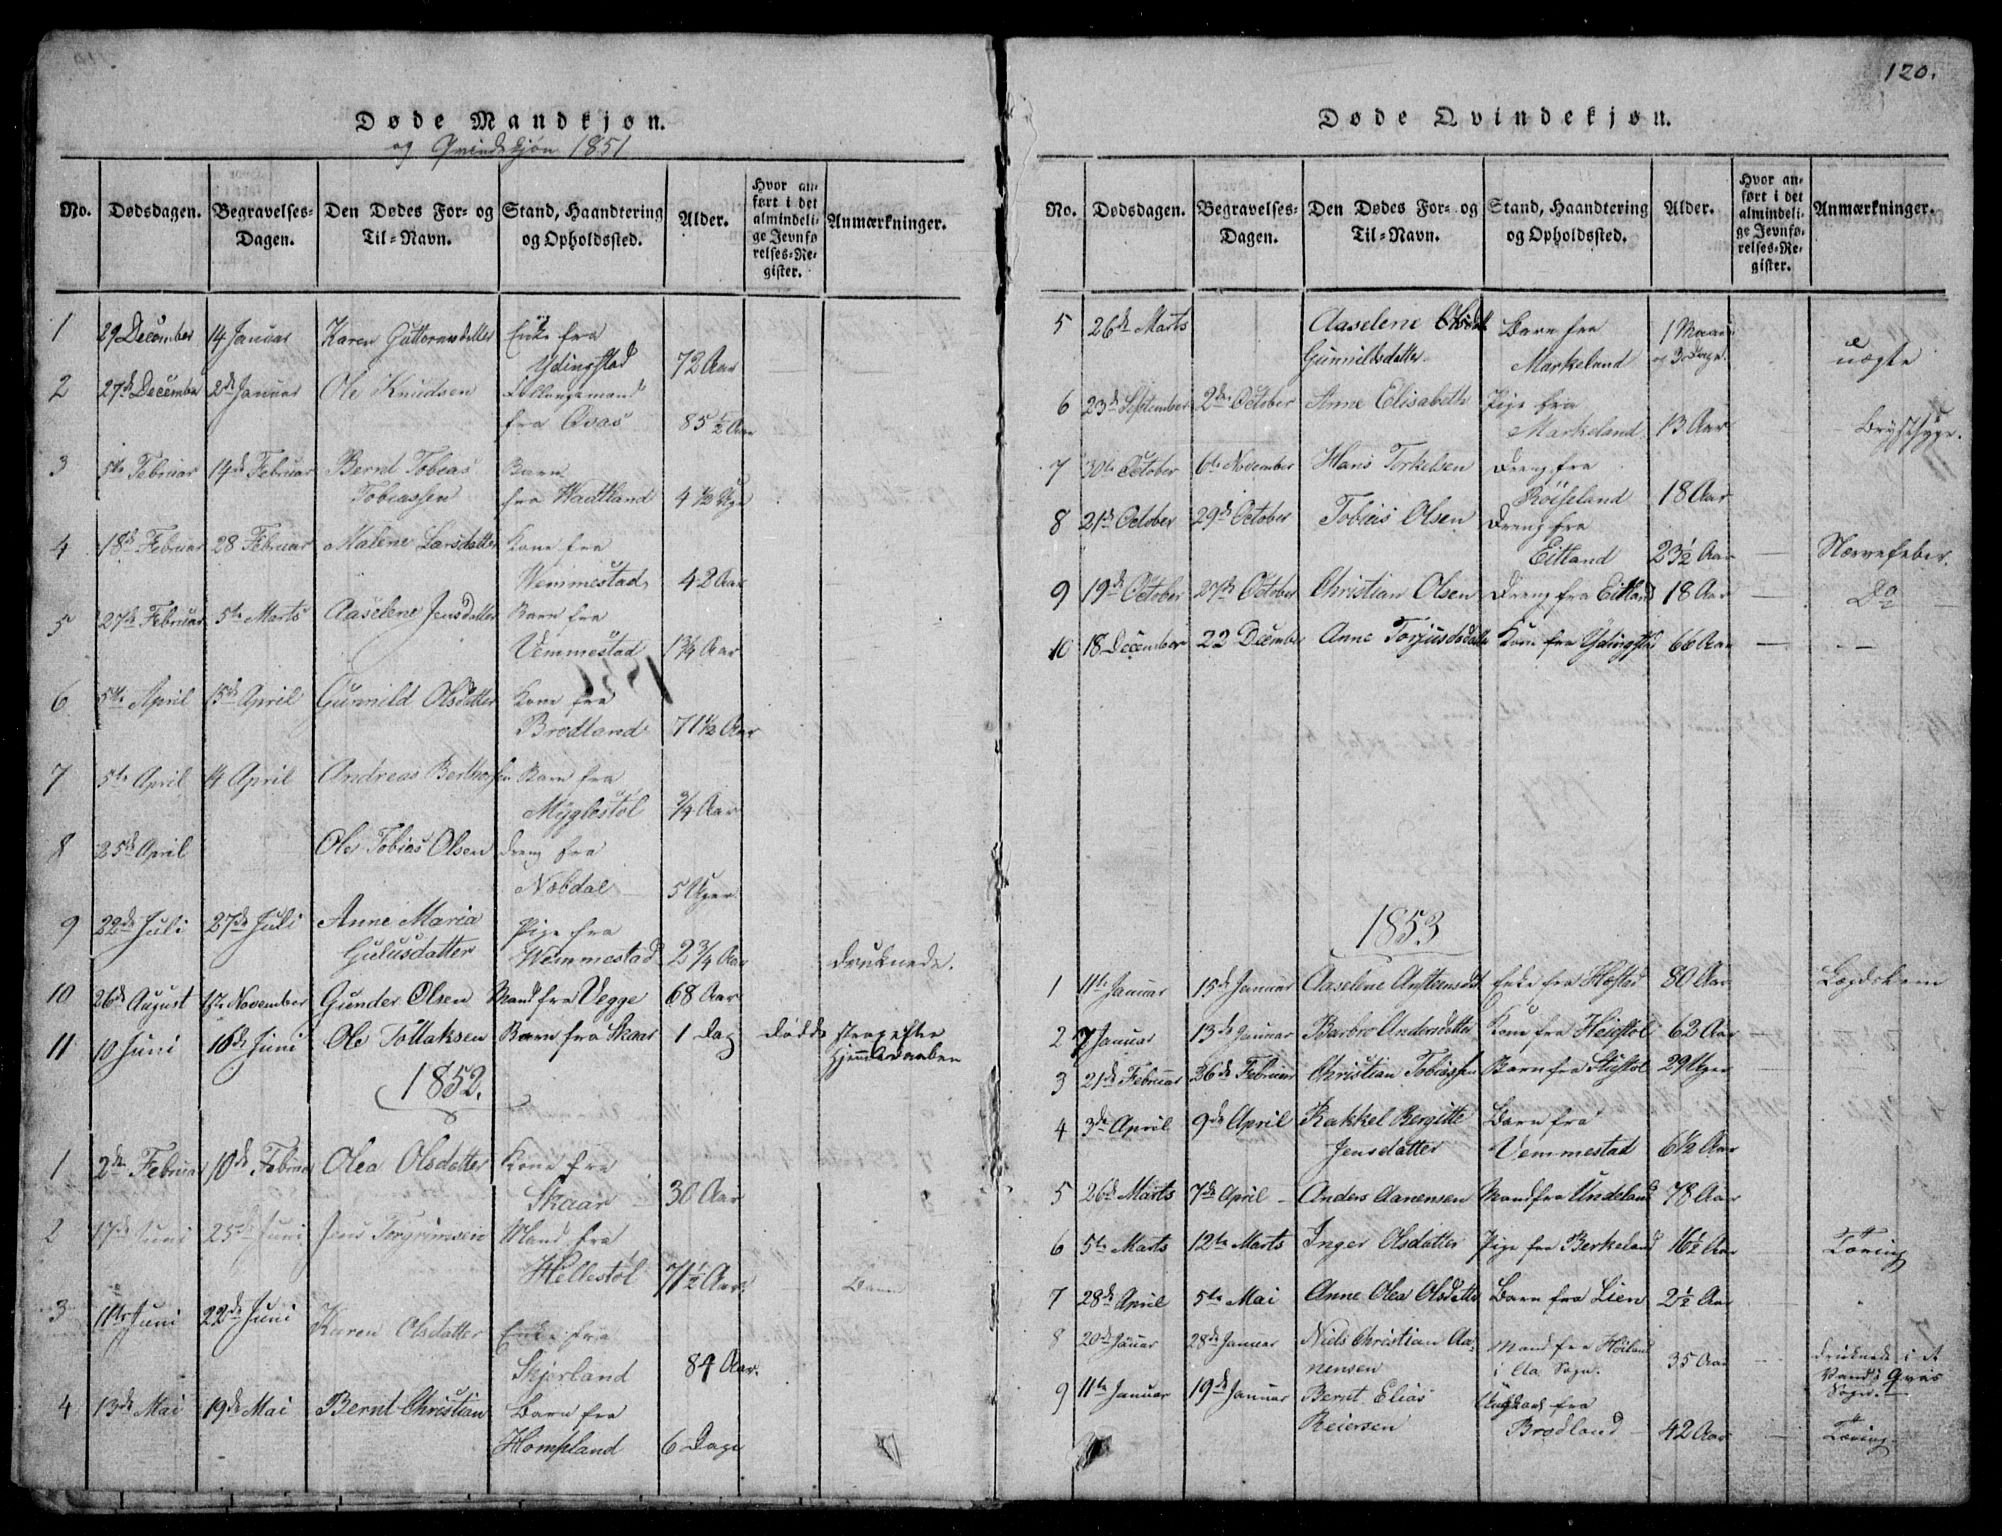 Døde Mandkjøn.
og Qvindekjøn 1851
No. Dødsdagen. Begravelses-Dagen. Den Dødes For- og Til-Navn. Stand, Haandtering og Opholdssted. Alder. Hvor anført i det almindelige Jevnførelses-Register. Anmærkninger.
1 29 December 14 Januar Karen Guttormsdatter Enke fra
Ydingstad 72 Aar
2 27de December 2de Januar Ole Knudsen
fra Qvas 85 1/2 Aar
3 5te Februar 14de Februar Bernt Tobias Barn
Tobiassen fra Vaatland 4 1/2 Uge
4 18de Februar 28 Februar Malene Larsdatter Kone fra
Wemmestad 42 Aar
5 27de Februar 5te Marts Aaselene Jensdatter Barn fra
Vemmestad 1 3/4 Aar
6 5te April 15de April Gunnild Olsdatter Kone fra
Brødland 71 1/2 Aar
7 5te April 14 April Andreas Berthorsen Barn fra
Myglestøl 3/4 Aar
8 25de April Ole Tobias Olsen dreng fra
Nøbdal 5 Uger
9 22de Juli 27de Juli Anne Maria Pige fra
Gulusdatter Wemmestad 2 3/4 Aar druknede.
10 26de August 1ste November Gunder Olsen Mand fra Vegge 68 Aar
11 10 Juni 16de Juni Ole Tollaksen Barn fra Skaar 1 Dag døde strax efter
Hjemmedaaben
1852.
1 2de Februar 10de Februar Olea Olsdatter Kone fra
Skaar 30 Aar
2 17de Juni 25de Juni Jens Torgrimsen Mand fra
Hellestøl 71 1/2 Aar
3 11te Juni 22de Juni Karen Olsdatter Enke fra
Skjerland 84 Aar.
4 13de Mai 19de Mai Bernt Christian Barn fra
Hompland 6 Dage
120.
Døde Qvindekjøn.
No. Dødsdagen. Begravelses-Dagen. Den Dødes For- og Til-Navn. Stand, Haandtering og Opholdssted. Alder. Hvor anført i det almindelige Jevnførelses-Register. Anmærkninger.
5 26de Marts Aaselene Barn fra 1 Maaned
Gunnildsdatter Markeland og 3 Dage. uægte
6 23de September 2den October Anne Elisabeth Pige fra
Markeland 13 Aar Brystsyge.
7 30te October 6te November Hans Torkelsen Dreng fra
Røiseland 18 Aar
8 21de October 29de October Tobias Olsen Dreng fra
Eitland 23 1/2 Aar Nervefeber.
9 19de October 27de October Christian Olsen Dreng fra Eitland 18 Aar Do
10 18 December 22 December Anne Torjusdatter Kone fra Ydingstad 66 Aar
1853
1 11te Januar 15de Januar Aaselene Anstensdat Enke fra Høstad 80 Aar Lægdslem
2 7 Januar 13de Januar Barbro Andersdatter Kone fra Heigstøl 62 Aar
3 21de Februar 26de Februar Christian Tobiassen Barn fra 29 Uger
4 3de April 9de April Rakkel Bergitte Barn fra
Jensdatter Vemmestad 6 1/2 Aar
5 26de Marts 7de April Anders Aanensen Mand fra Undeland 78 Aar
6 5te Marts 12te Marts Inger Olsdatter Pige fra Berkeland 16 1/2 Aar Tæring
7 28de April 5te Mai Anne Olea Olsdatter Barn fra Lien 2 1/2 Aar
8 20de Januar 28de Januar Niels Christian Aa- Mand fra Høiland
nensen i Aa Sogn. 35 Aar druknede i et
Vand i Qvas
Sogn.
9 11te Januar 19de Januar Bernt Elias fra
Reiersen Brødland 42 Aar Tæring.